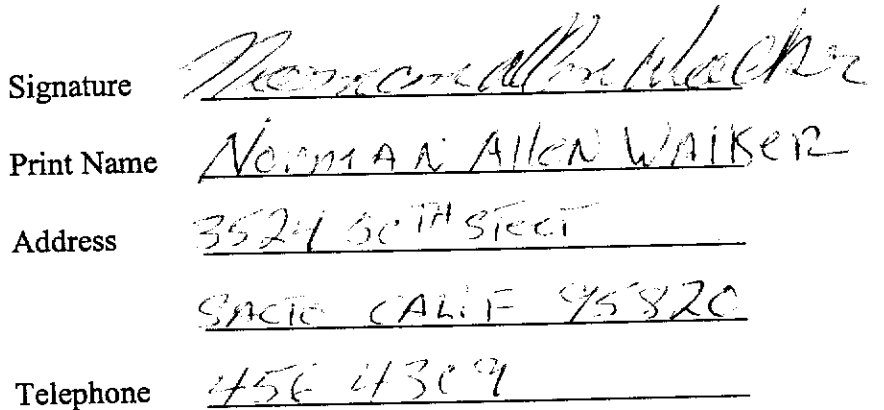 Signature Norman Allen Walker
Print Name NORMAN AllEN WAlKeR
Address 3524 50TH STeeT
SACTO CALIF 95820
Telephone 456 4309